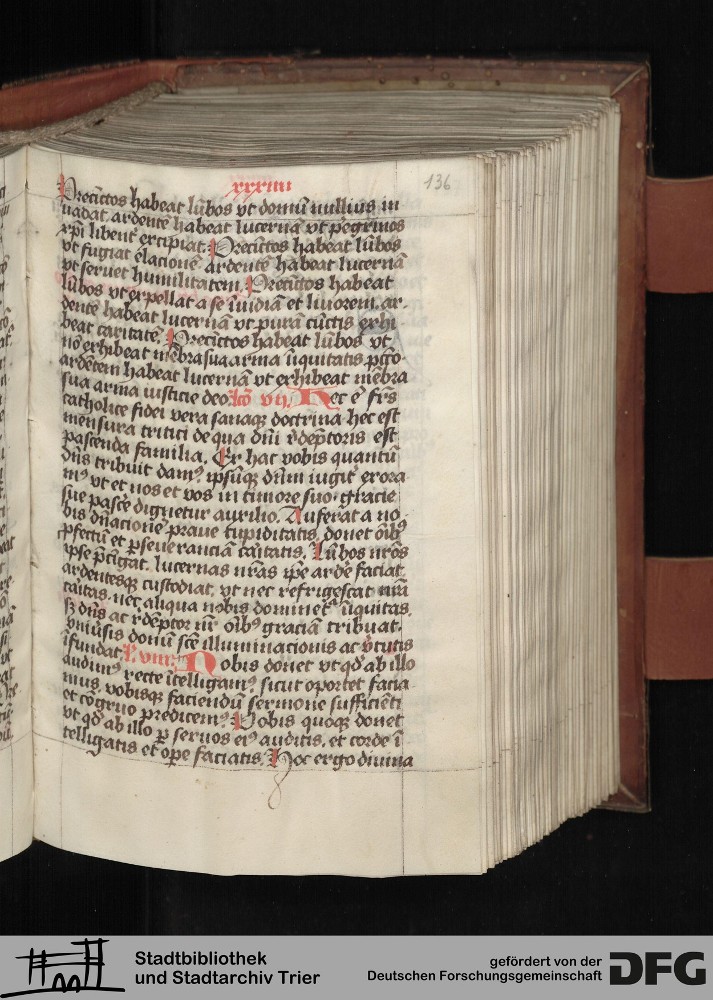 xxxiiii
136
Precīctos habeat lūbos vt domū nullius in
uadat. ardentē habeat lucernā vt pegrinos
xp̄i libent᷑ excipiat. Precīctos habeat lūbos
vt fugiat elacionē ardentē habeat lucernā
vt seruet humilitatem. Precīctos habeat
lūbos vt expellat a se īuidiā et liuorem. ar
dentē habeat lucernā vt purā cūctis exhi
beat caritatē. Precīctos habeat lūbos vt
nō exhibeat mēbra sua arma īiquitatis pctō
ardētem habeat lucernā vt exhibeat mēbra
sua arma iusticie deo. lcō vij. Hec ē frs̄
catholice fidei vera sanaqꝫ doctrina. hec est
mensura tritici de qua dnī rͩdēptoris est
pascenda familia. Ex hac vobis quantū
dn̄s tribuit damꝰ. ipsūqꝫ dn̄m iugit᷑ exora
mꝰ vt et nos et vos in timore suo. gracie
sue pascē dignetur auxilio. Auferat a no
bis dn̄acionē praue cupiditatis. donet oībꝰ
pfectū et pseueranciā caritatis. Lūbos nr̄os
ipse pc̄īgat. lucernas nr̄as ipe ardē faciat.
ardentesqꝫ custodiat. vt nec refrigescat nr̄a
caritas. nec aliqua nobis dominet᷑ īiquitas.
sꝫ dn̄s ac rͩdēptor nr̄ oībꝰ graciā tribuat.
vniuīsis donū scē illuminacionis ac vͥtutis
īfundat. l. viii. Nobis donet vt qd̄ ab illo
audimꝰ recte ītelligamꝰ. sicut oportet facia
mus. vobisqꝫ faciendū sermone sufficiēti
et cōgruo predicemꝰ. Vobis quoqꝫ donet
vt qd̄ ab illo ꝑ seruos eiꝰ auditis. et corde ī
telligatis et ope faciatis. Hoc ergo diuina
Stadtbibliothek
und Stadtarchiv Trier
gefördert von der
Deutschen Forschungsgemeinschaft
DFG